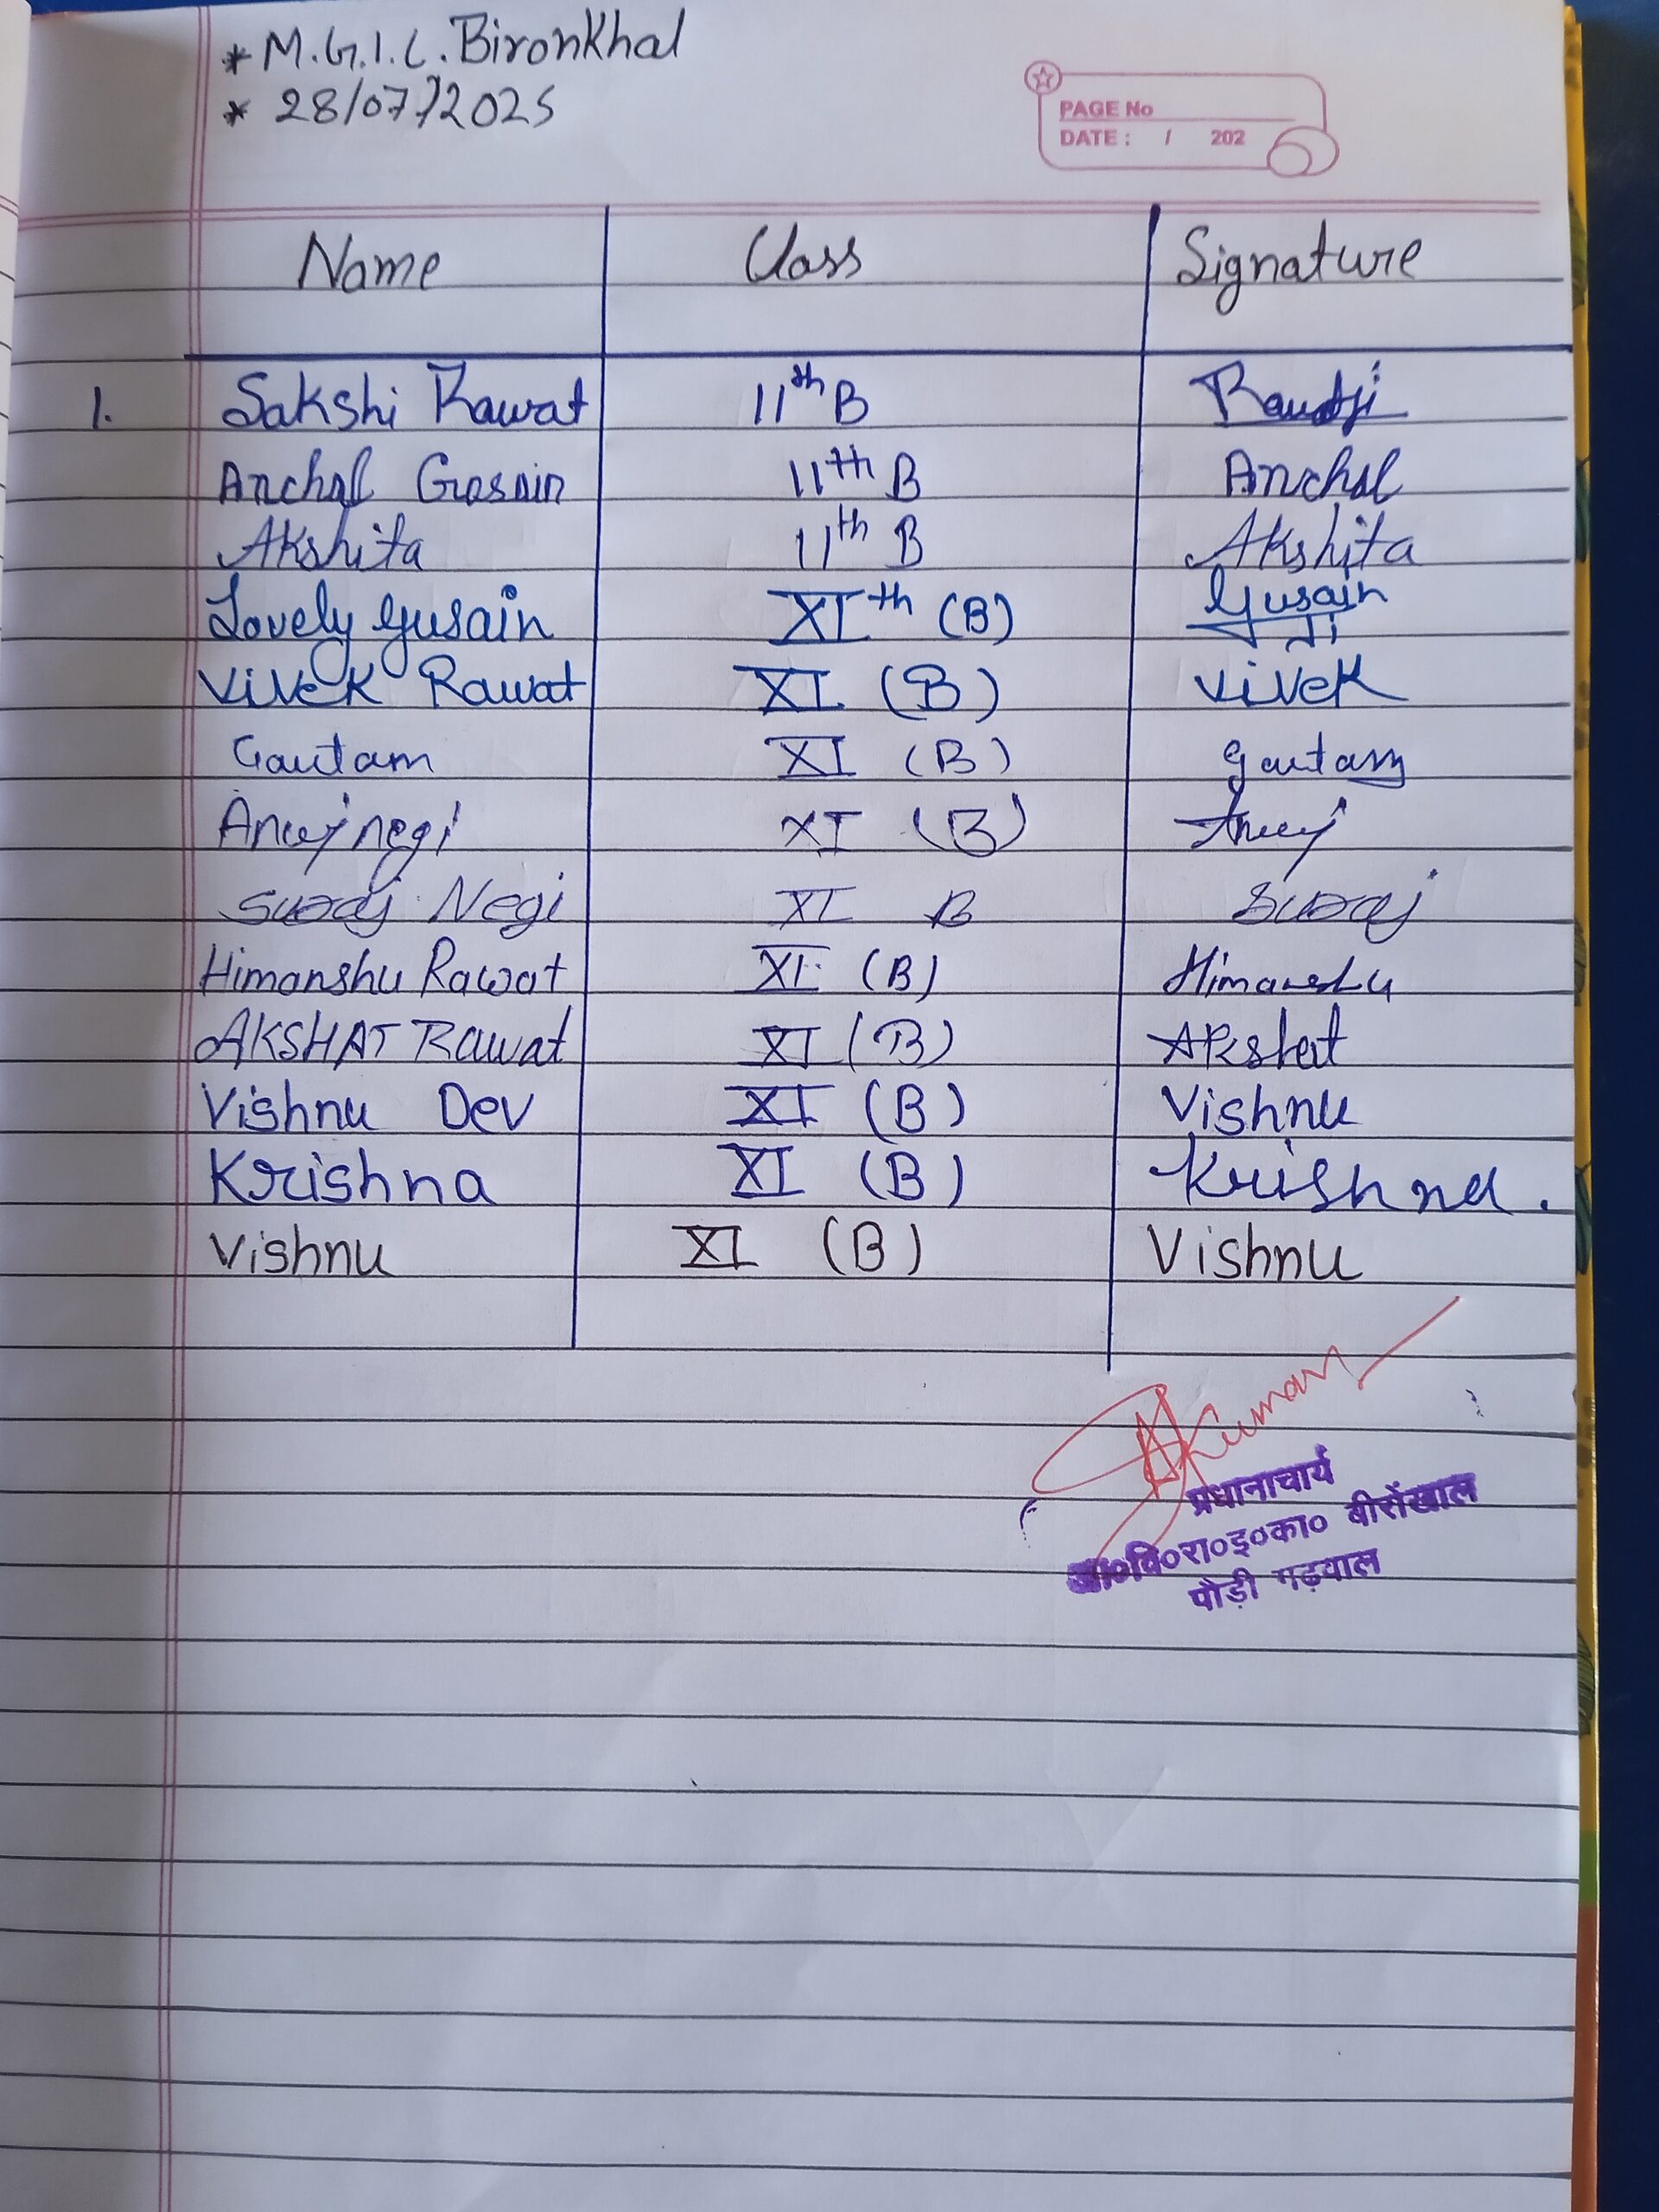 * M.G.I.C. Bironkhal
* 28/07/2025
PAGE No
DATE : / 202
Name Class Signature
1. Sakshi Rawat 11th B Rawatji
Anchal Gosain 11th B Anchal
Akshita 11th B Akshita
Lovely Gusain XI th (B) Gusain
Ji
Vivek Rawat XI (B) Vivek
Gautam XI (B) gautam
Anuj negi XI (B) Anuj
Suraj Negi XI B Suraj
Himanshu Rawat XI (B) Himanshu
AKSHAT Rawat XI (B) Akshat
Vishnu Dev XI (B) Vishnu
Krishna XI (B) Krishna.
Vishnu XI (B) Vishnu
Kumar
प्रधानाचार्य
वि०रा०इ०का० बीरोंखाल
पौड़ी गढ़वाल